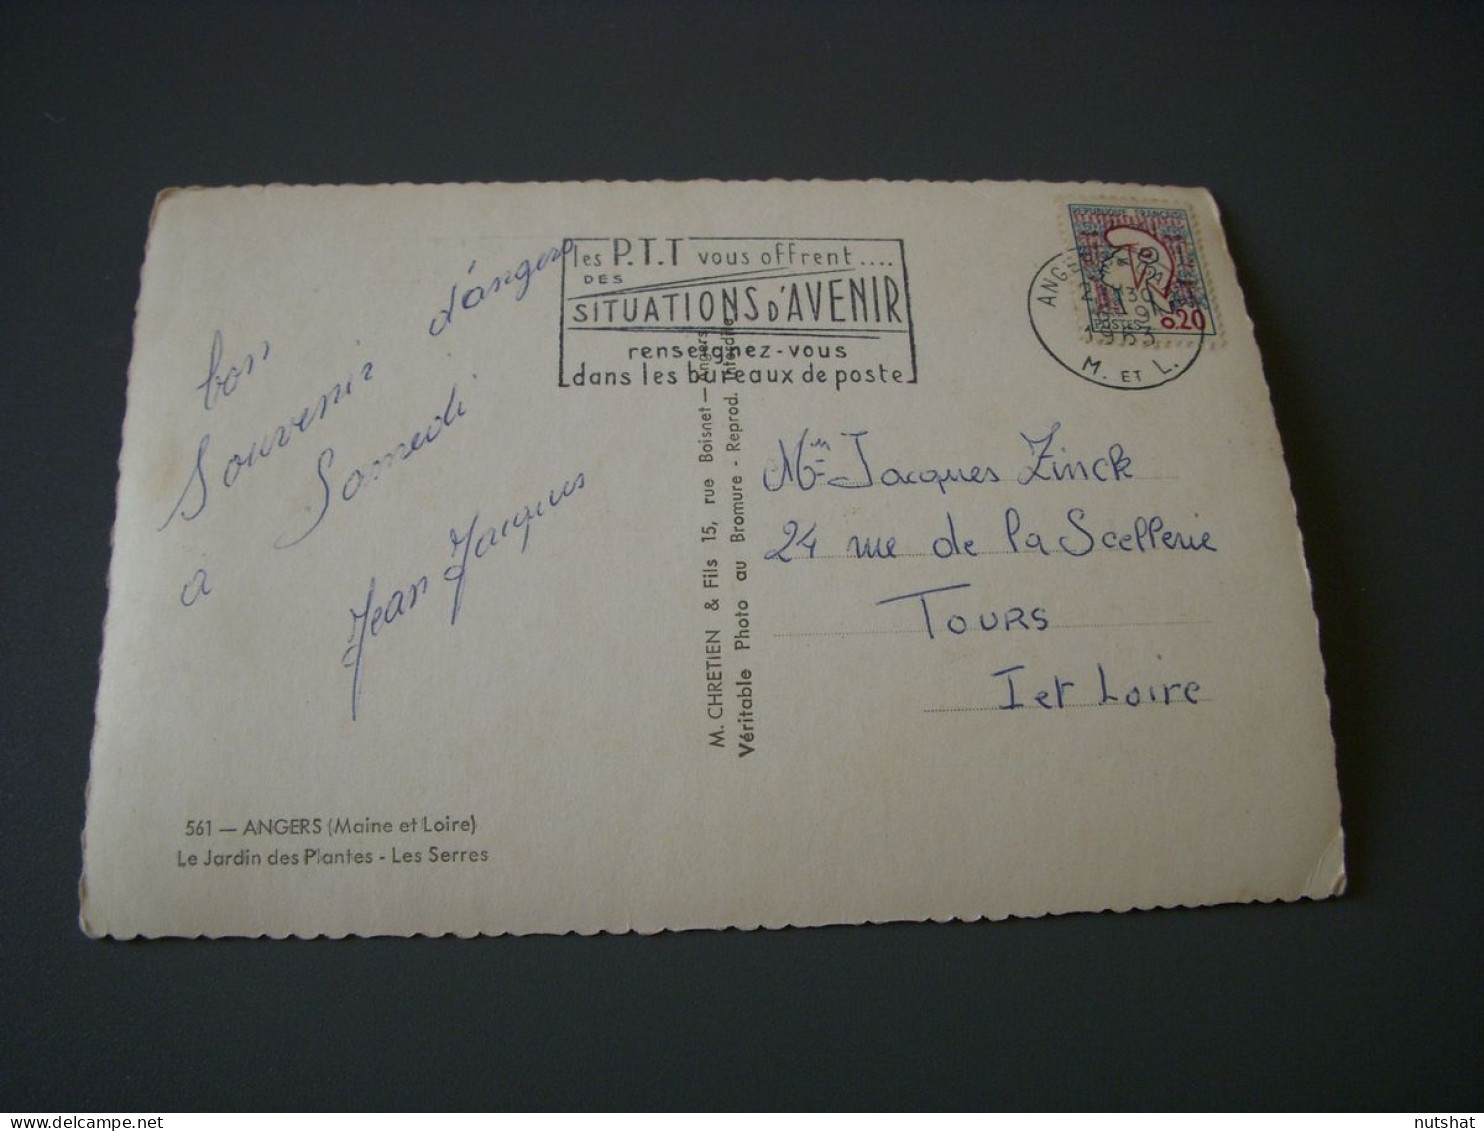 bon
Souvenir d'angers
à Samedi
Jean Jacques
561 — ANGERS (Maine et Loire)
Le Jardin des Plantes - Les Serres
les P.T.T vous offrent....
DES
SITUATIONS D'AVENIR
renseignez-vous
dans les bureaux de poste
M. CHRETIEN & Fils 15, rue Boisnet — Angers
Véritable Photo au Bromure - Reprod. Interdite
REPUBLIQUE FRANÇAISE
POSTES 0.20
1963
M. ET L.
Jacques Zinck
24 rue de la Scellerie
TOURS
I et Loire
nutshat